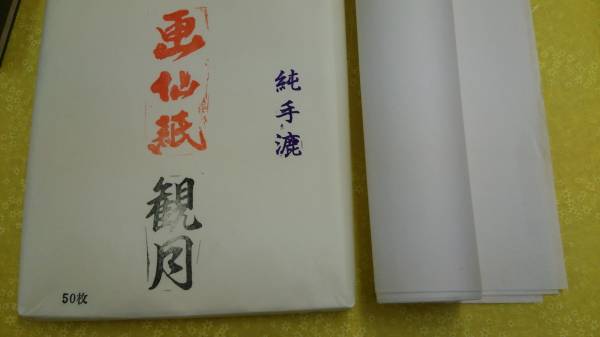 純手漉
画仙紙
観月
50枚